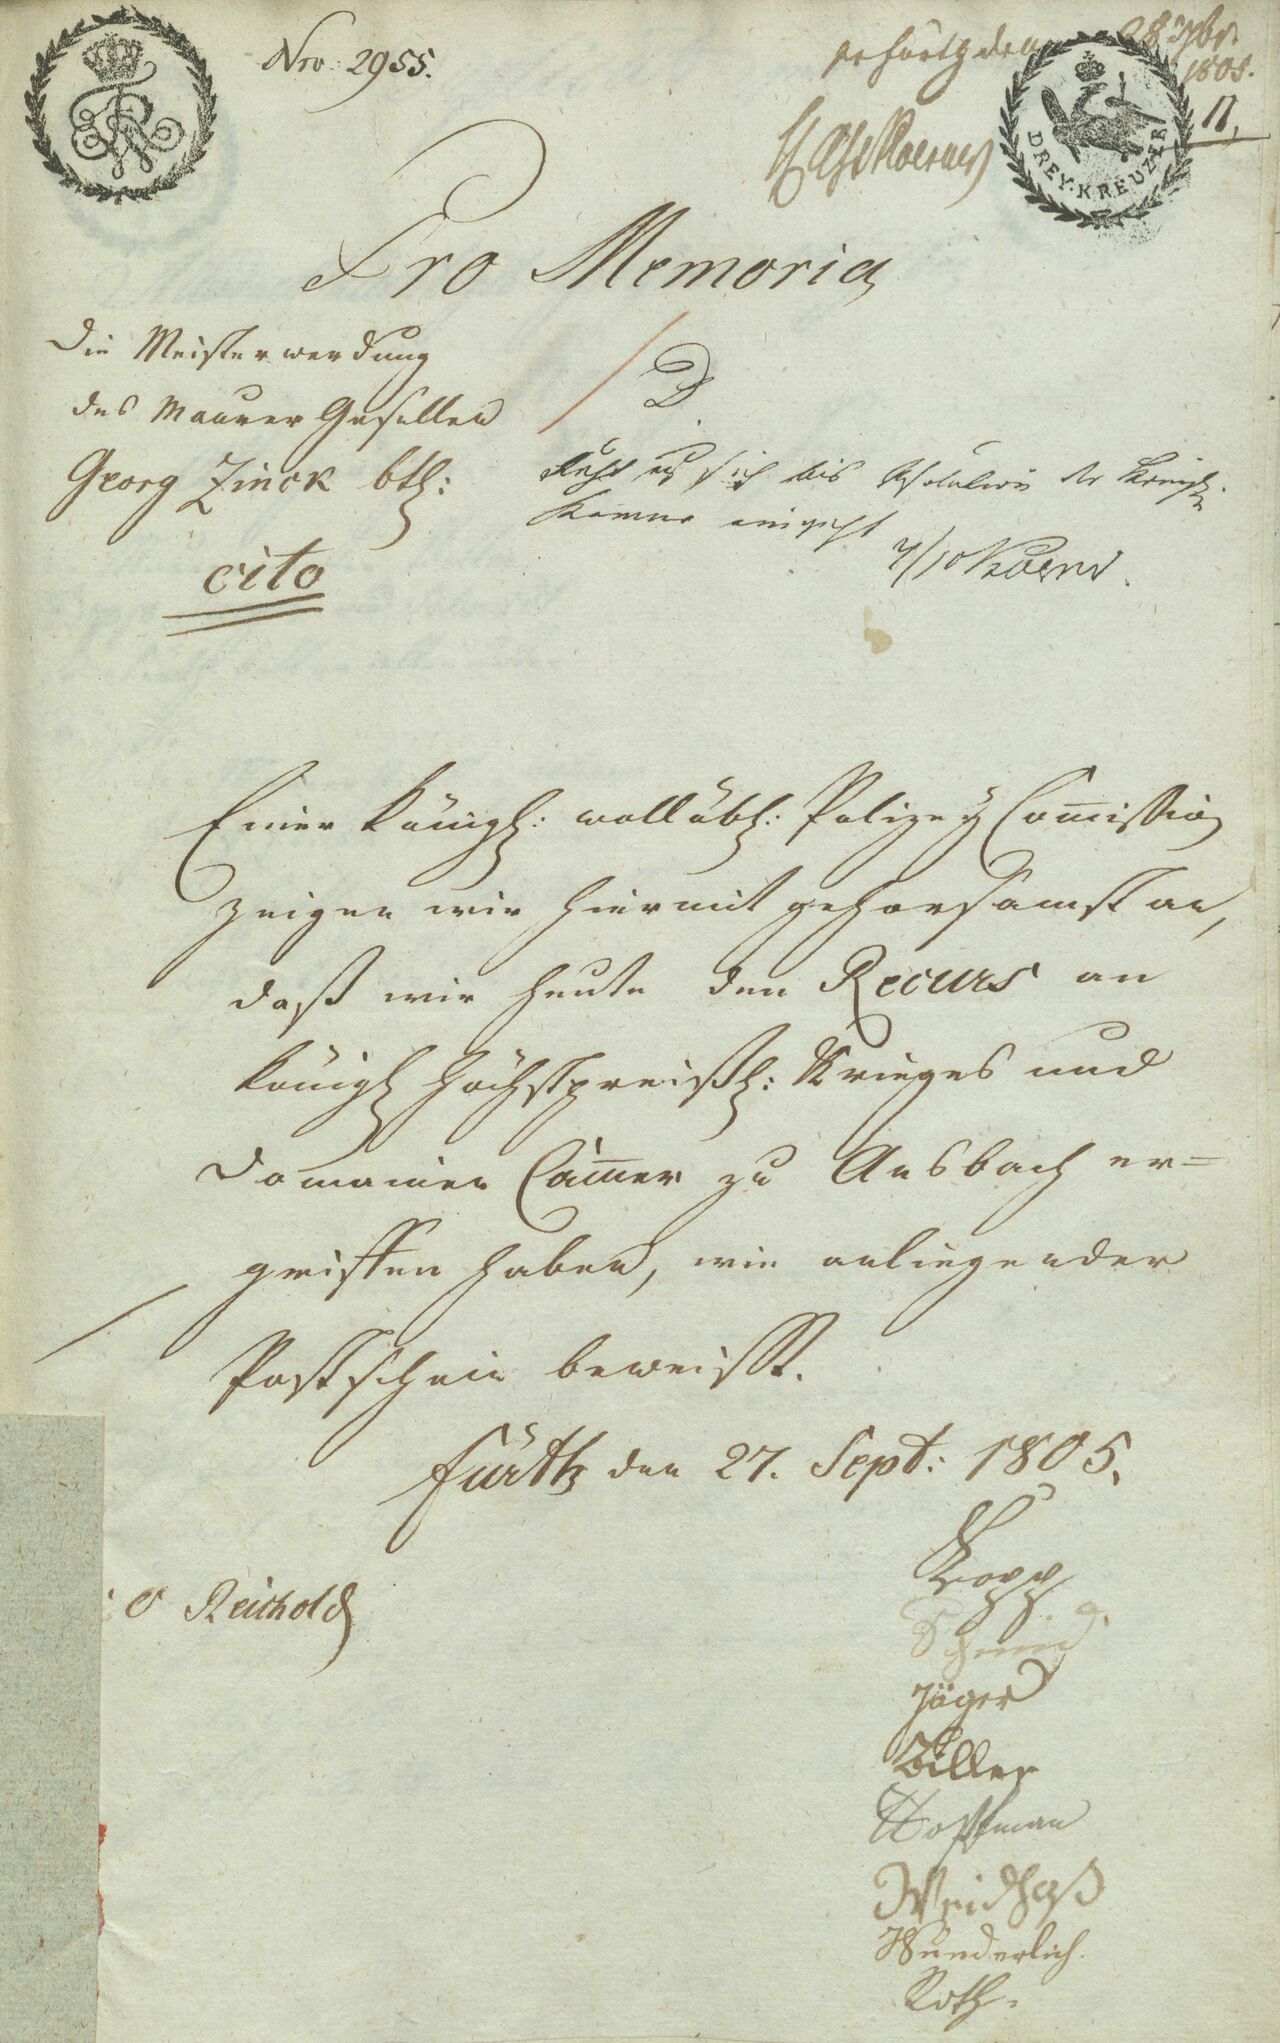 Nro: 2955.
den 28 7br.
1805.
DREY·KREUZER
Pro Memoria
Die Meisterwerdung
des Maurer Gesellen
Georg Zinck btl:
cito
D
bis Resolution der
Kammer eingeht
Einer Königl: wollöbl: Polizey Com̅ission
zeigen wir hiermit gehorsamst an,
daß wir heute den Recurs an
Königl höchstpreißl: Krieges und
Domainen Cam̅er zu Ansbach er=
griffen haben, wie anliegender
Postschein beweißt.
Fürth den 27. Sept: 1805.
Reichold
Kopp.
Schmid
Jäger
Biller
Hoffman
Weidhaß
Wunderlich.
Roth.